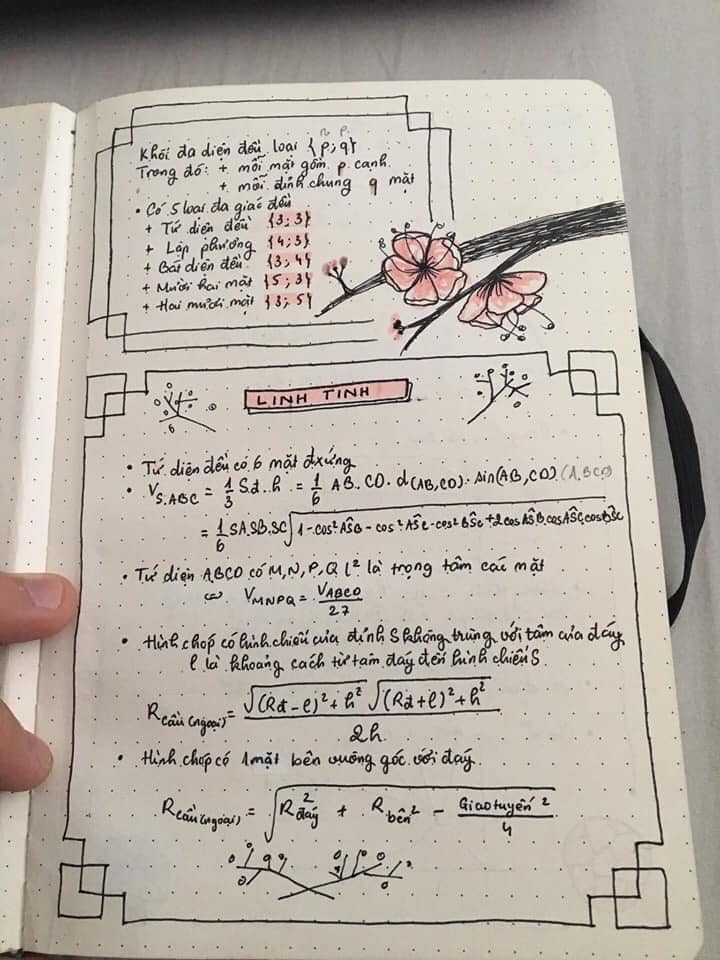 n p
Khối đa diện đều loại {p; q}
Trong đó: + mỗi mặt gồm p cạnh
+ mỗi đỉnh chung q mặt
• Có 5 loại đa giác đều
+ Tứ diện đều {3; 3}
+ Lập phương {4; 3}
+ Bát diện đều {3; 4}
+ Mười hai mặt {5; 3}
+ Hai mươi mặt {3; 5}
LINH TINH
• Tứ diện đều có 6 mặt đxứng
• V_{S.ABC} = 1/3 Sđ.h = 1/6 AB.CD.d(AB,CD).sin(AB,CD) (ABCD)
= 1/6 SA.SB.SC √(1 - cos²AŜB - cos²AŜC - cos²BŜC + 2cosAŜB.cosAŜC.cosBŜC)
• Tứ diện ABCD có M, N, P, Q l² là trọng tâm các mặt
V_{MNPQ} = V_{ABCD}/27
• Hình chóp có hình chiếu của đỉnh S không trùng với tâm của đáy
l là khoảng cách từ tâm đáy đến hình chiếu S.
R_{cầu(ngoại)} = √((Rđ - l)² + h²) √((Rđ + l)² + h²) / 2h
• Hình chóp có 1 mặt bên vuông góc với đáy.
R_{cầu(ngoại)} = √(R_{đáy}² + R_{bên}² - Giao tuyến²/4)